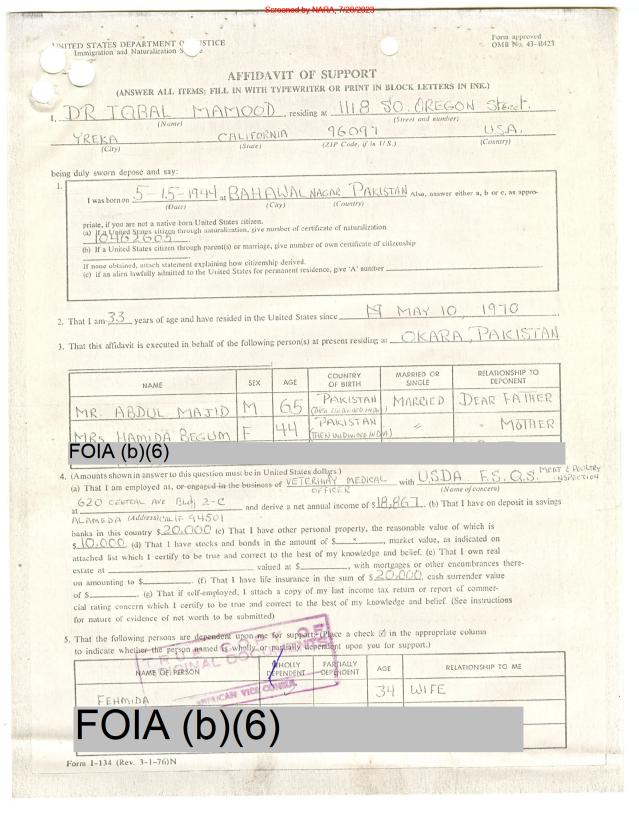 Screened by NARA, 7/20/2023
UNITED STATES DEPARTMENT OF JUSTICE
Immigration and Naturalization
Form approved
OMB No. 43-R423
AFFIDAVIT OF SUPPORT
(ANSWER ALL ITEMS; FILL IN WITH TYPEWRITER OR PRINT IN BLOCK LETTERS IN INK.)
I, DR IQBAL MAMOOD, residing at 1118 SO. OREGON Street.
(Name) (Street and number)
YREKA CALIFORNIA 96097 U.S.A.
(City) (State) (ZIP Code, if in U.S.) (Country)
being duly sworn depose and say:
1.
I was born on 5-15-1944 at BAHAWALNAGAR PAKISTAN Also, answer either a, b or c, as appro-
(Date) (City) (Country)
priate, if you are not a native born United States citizen.
(a) If a United States citizen through naturalization, give number of certificate of naturalization
10462605
(b) If a United States citizen through parent(s) or marriage, give number of own certificate of citizenship
If none obtained, attach statement explaining how citizenship derived.
(c) If an alien lawfully admitted to the United States for permanent residence, give 'A' number
2. That I am 33 years of age and have resided in the United States since MAY 10, 1970
3. That this affidavit is executed in behalf of the following person(s) at present residing at OKARA, PAKISTAN
NAME SEX AGE COUNTRY OF BIRTH MARRIED OR SINGLE RELATIONSHIP TO DEPONENT
MR. ABDUL MAJID M 65 PAKISTAN (THEN UNDIVIDED INDIA) MARRIED DEAR FATHER
MRS HAMIDA BEGUM F 44 PAKISTAN (THEN UNDIVIDED INDIA) " " MOTHER
FOIA (b)(6)
4. (Amounts shown in answer to this question must be in United States dollars.)
(a) That I am employed as, or engaged in the business of VETERINARY MEDICAL OFFICER with USDA F.S.Q.S. MEAT & POULTRY INSPECTION
(Name of concern)
at 620 CENTRAL AVE Bldg 2-C and derive a net annual income of $18,867. (b) That I have on deposit in savings
ALAMEDA (Address) CALIF 94501
banks in this country $20,000 (c) That I have other personal property, the reasonable value of which is
$10,000. (d) That I have stocks and bonds in the amount of $ , market value, as indicated on
attached list which I certify to be true and correct to the best of my knowledge and belief. (e) That I own real
estate at valued at $ , with mortgages or other encumbrances there-
on amounting to $ (f) That I have life insurance in the sum of $20,000, cash surrender value
of $ . (g) That if self-employed, I attach a copy of my last income tax return or report of commer-
cial rating concern which I certify to be true and correct to the best of my knowledge and belief. (See instructions
for nature of evidence of net worth to be submitted)
5. That the following persons are dependent upon me for support: (Place a check ☑ in the appropriate column
to indicate whether the person named is wholly or partially dependent upon you for support.)
TRUE COPY OF
ORIGINAL DOCUMENT
AMERICAN VICE CONSUL
NAME OF PERSON WHOLLY DEPENDENT PARTIALLY DEPENDENT AGE RELATIONSHIP TO ME
FEHMIDA 34 WIFE
FOIA (b)(6)
Form I-134 (Rev. 3-1-76)N